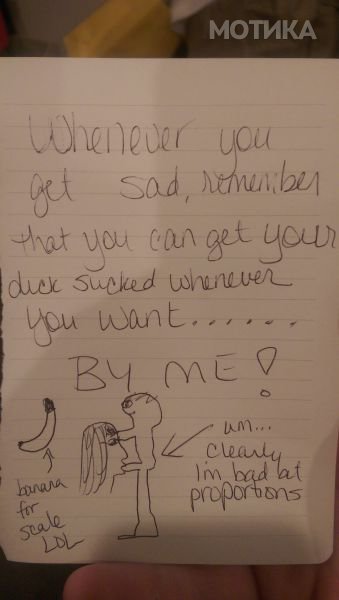 МОТИКА
Whenever you
get sad, remember
that you can get your
dick sucked whenever
you want.......
BY ME!
um...
clearly
I'm bad at
proportions
banana
for
scale
LOL